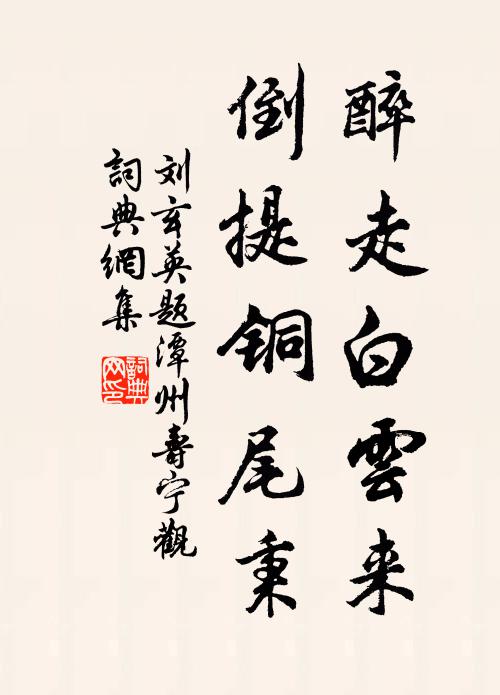 醉走白雲来
倒提铜尾秉
刘玄英题潭州寿宁觀
詞典網集
詞典网印